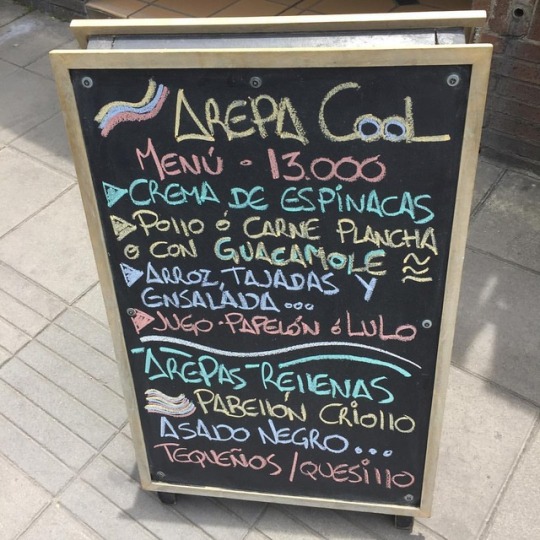 AREPA COOL
MENÚ · 13.000
CREMA DE ESPINACAS
POLLO Ó CARNE PLANCHA
CON GUACAMOLE
ARROZ, TAJADAS Y
ENSALADA...
JUGO · PAPELÓN Ó LULO
AREPAS RELLENAS
PABELLÓN CRIOLLO
ASADO NEGRO...
TEQUEÑOS/QUESILLO